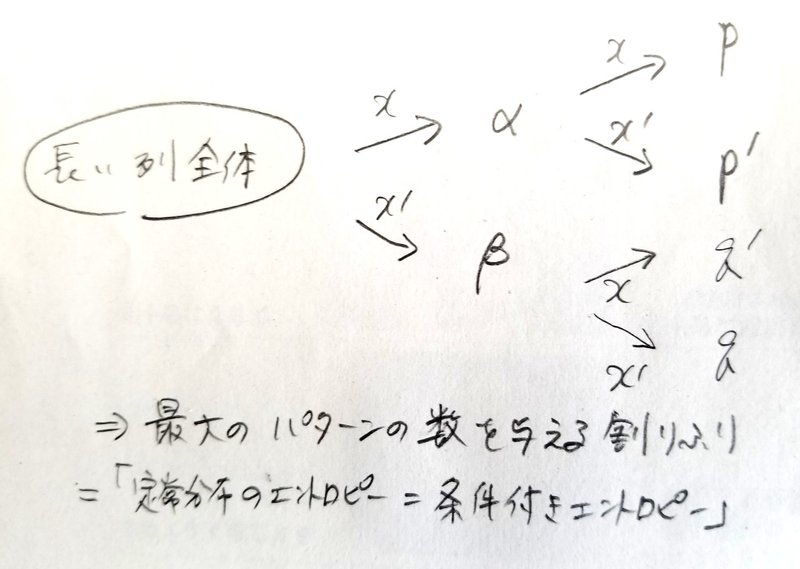 x p
x α x′
長い列全体 p′
x′ q′
β x
x′ q
⇒ 最大のパターンの数を与える割りふり
=「定常分布のエントロピー = 条件付きエントロピー」